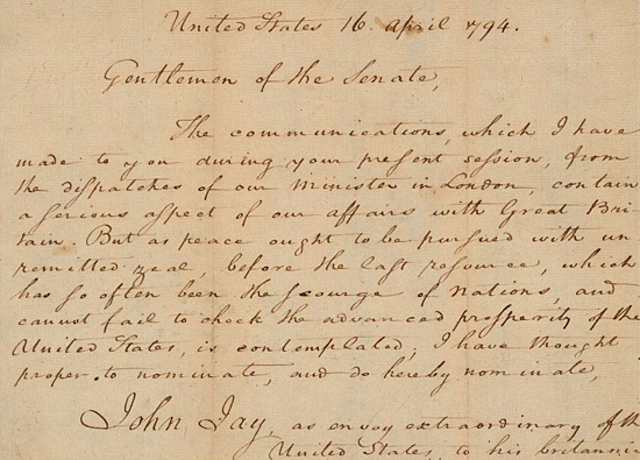 United States 16. April 1794.
Gentlemen of the Senate,
The communications, which I have
made to you during your present session, from
the dispatches of our Minister in London, contain
a serious aspect of our affairs with Great Bri
tain. But as peace ought to be pursued with un
remitted zeal, before the last resource, which
has so often been the scourge of Nations, and
cannot fail to check the advanced prosperity of the
United States, is contemplated; I have thought
proper to nominate, and do hereby nominate,
John Jay, as envoy extraordinary of th
United States, to his britanni